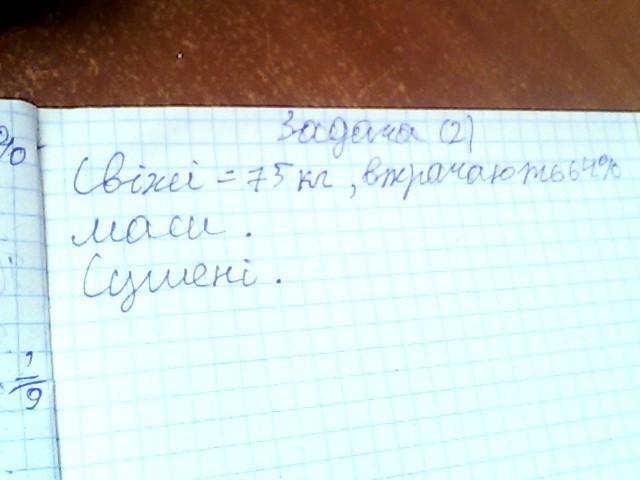 Задача (2)
Свіжі = 75 кг, втрачають 64%
маси.
Сушені.
%
1
9